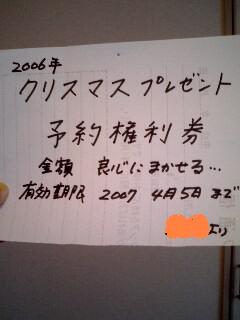 2006年
クリスマスプレゼント
予約権利券
金額 良心にまかせる…
有効期限 2007 4月5日まで
より